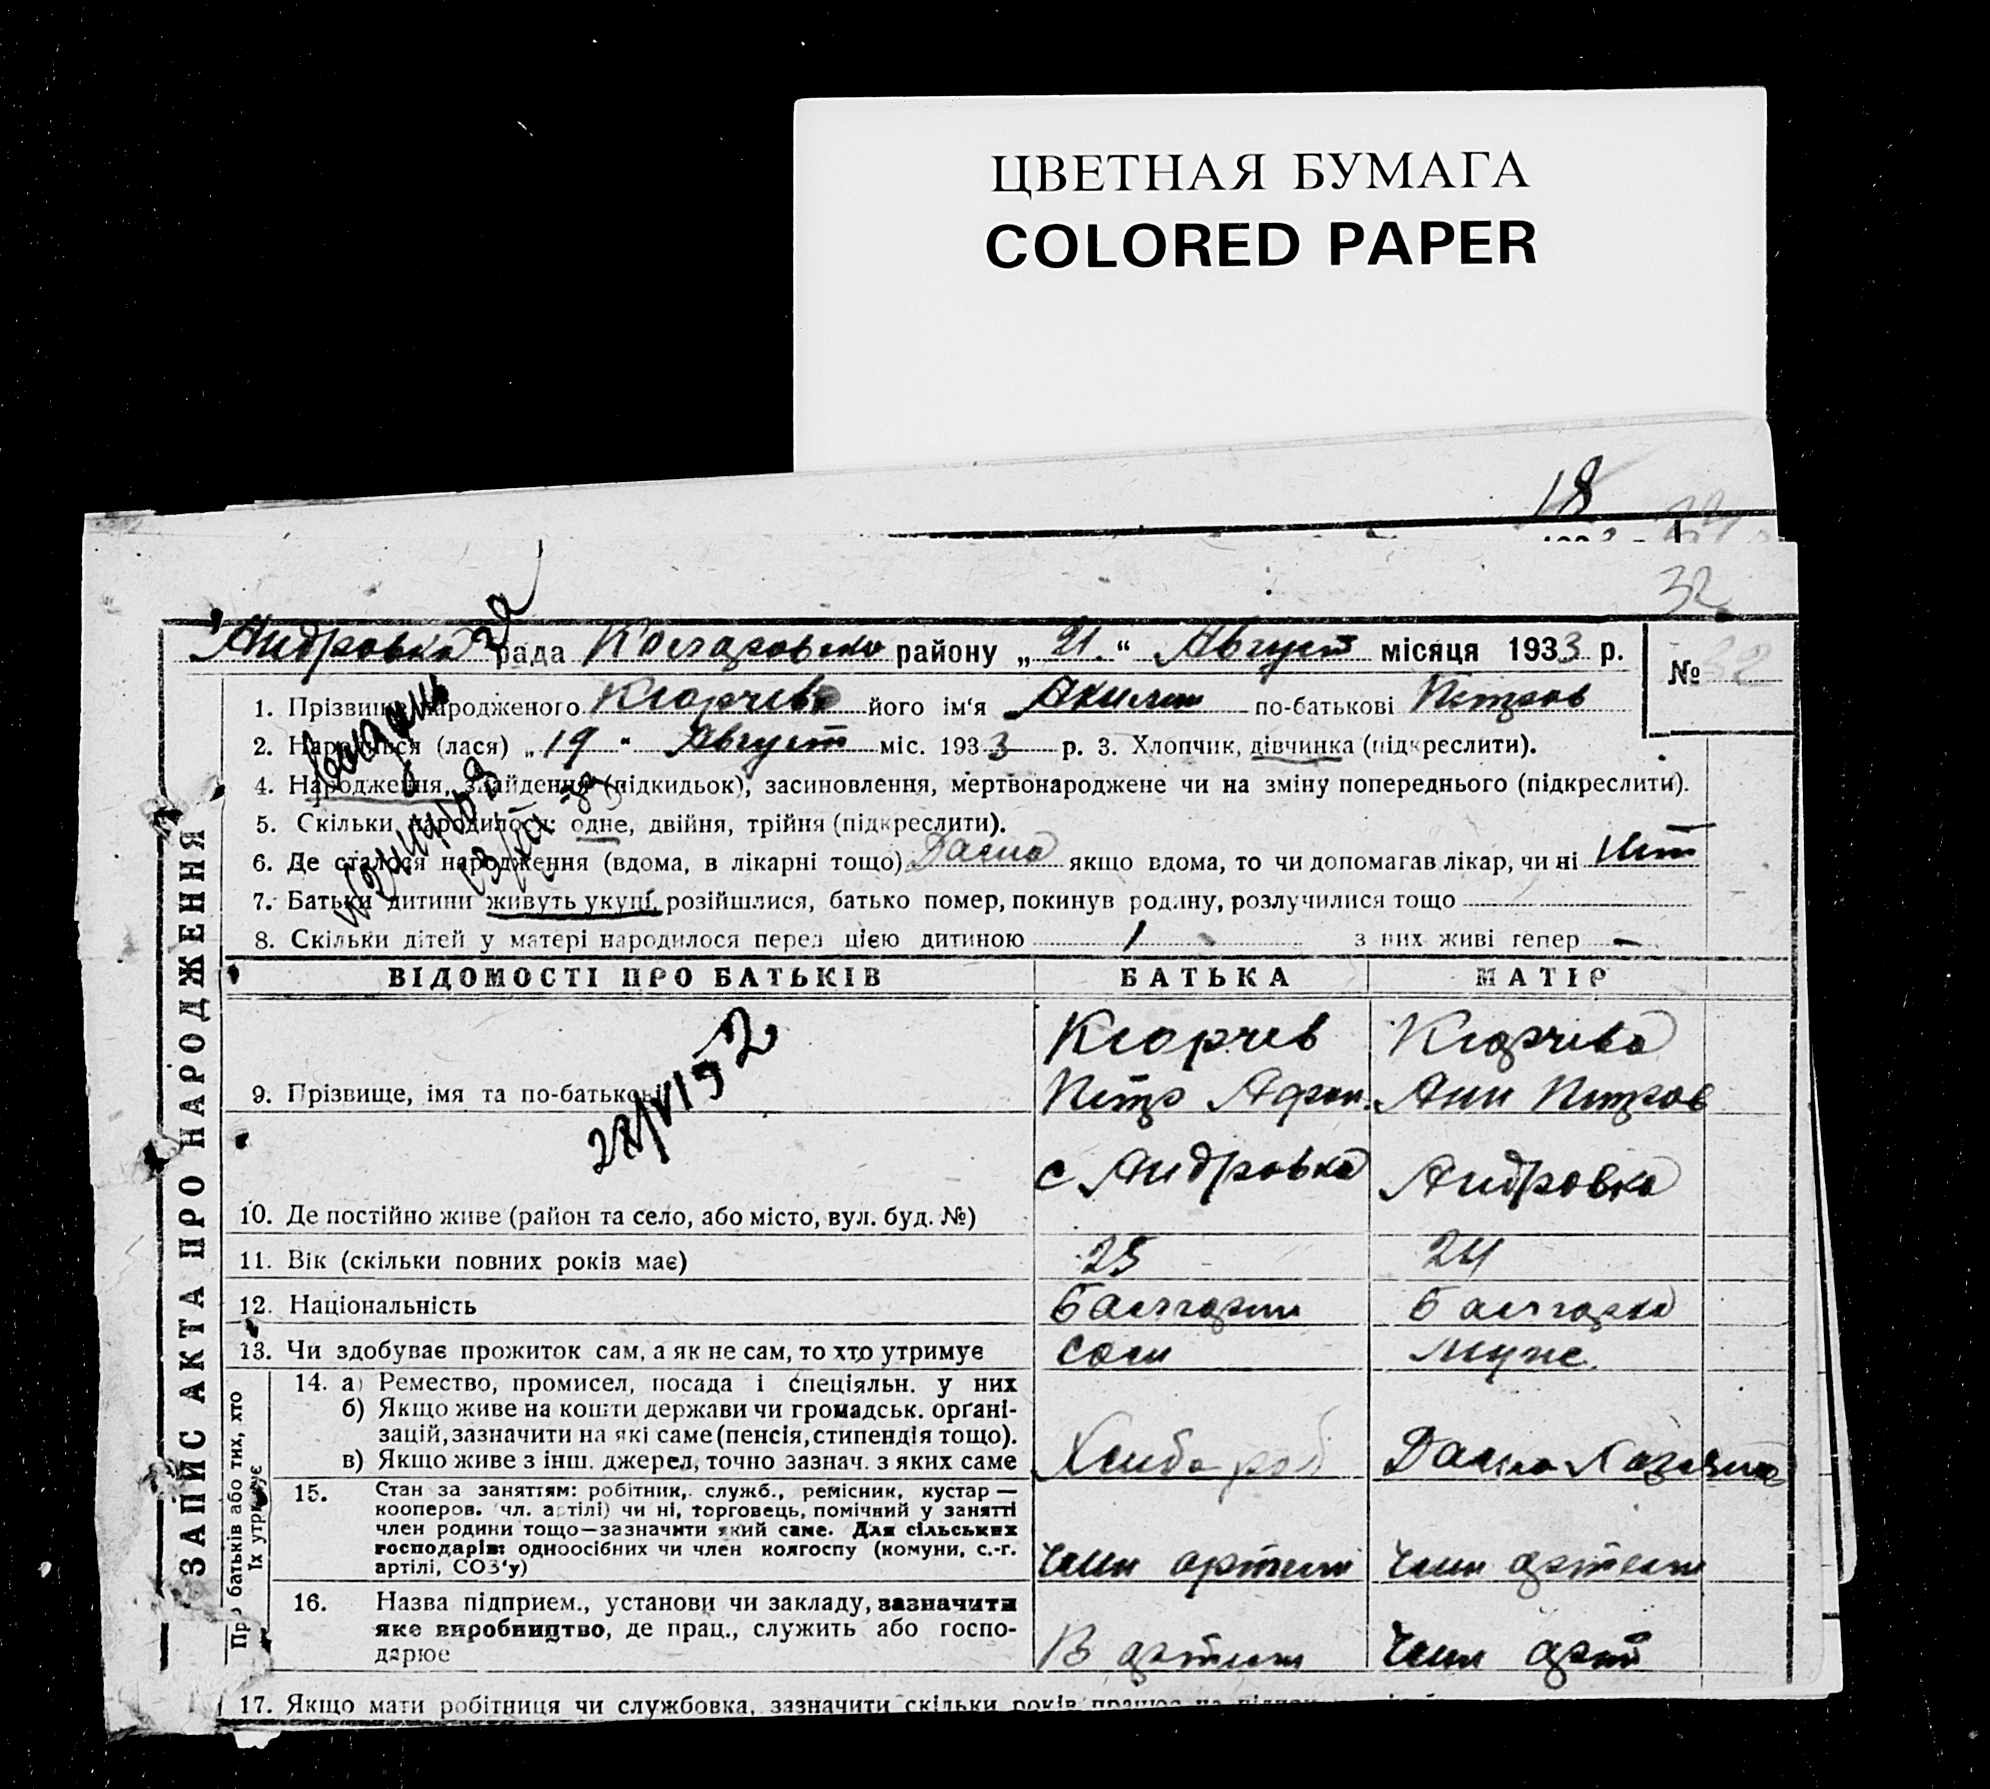 ЦВЕТНАЯ БУМАГА
COLORED PAPER
18
32
Андровка рада Коларовски районy „ 21. “ Август місяця 1933 р.
№ 32
1. Прізвище народженого Кюрчева його ім‘я Акилин по-батькові Петров
2. Народився (лася) „ 19 “ Август міс. 1933 р. 3. Хлопчик, дівчинка (підкреслити).
4. Народження, знайдення (підкидьок), засиновлення, мертвонароджене чи на зміну попереднього (підкреслити).
5. Скільки народилося: одне, двійня, трійня (підкреслити).
6. Де сталося народження (вдома, в лікарні тощо) Дома якщо вдома, то чи допомагав лікар, чи ні Нет
7. Батьки дитини живуть укупі, розійшлися, батько помер, покинув родину, розлучилися тощо
8. Скільки дітей у матері народилося перед цією дитиною 1 з них живі тепер —
ЗАПИС АКТА ПРО НАРОДЖЕННЯ
ВІДОМОСТІ ПРО БАТЬКІВ БАТЬКА МАТІР
22/VI 52
9. Прізвище, імя та по-батькові Кюрчев Петр Афан. Кюрчева Анн Петров
10. Де постійно живе (район та село, або місто, вул. буд. №) с Андровка Андровка
11. Вік (скільки повних років має) 25 24
12. Національність Болгарин Болгарка
13. Чи здобуває прожиток сам, а як не сам, то хто утримує сам муже.
Про батьків або тих, хто
їх утримує
14. а) Ремество, промисел, посада і спеціяльн. у них
б) Якщо живе на кошти держави чи громадськ. орґані-
зацій, зазначити на які саме (пенсія, стипендія тощо).
в) Якщо живе з інш. джерел, точно зазнач. з яких саме Хлибороб Домохазяика
15. Стан за заняттям: робітник, служб., ремісник, кустар —
кооперов. чл. артілі) чи ні, торговець, помічний у занятті
член родини тощо—зазначити який саме. Для сільських
господарів: одноосібних чи член колгоспу (комуни, с.-г.
артілі, СОЗ‘у) член артели член артели
16. Назва підприєм., установи чи закладу, зазначити
яке виробництво, де прац., служить або госпо-
дарює В артели член арт
17. Якщо мати робітниця чи службовка, зазначити скільки років працює на